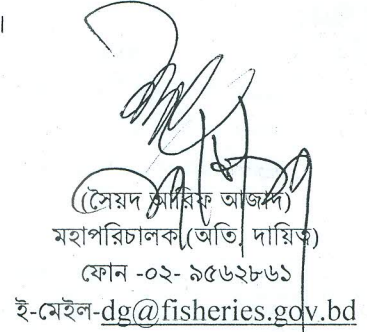 ।
(সৈয়দ আরিফ আজাদ)
মহাপরিচালক (অতি. দায়িত্ব)
ফোন -০২- ৯৫৬২৮৬১
ই-মেইল-dg@fisheries.gov.bd